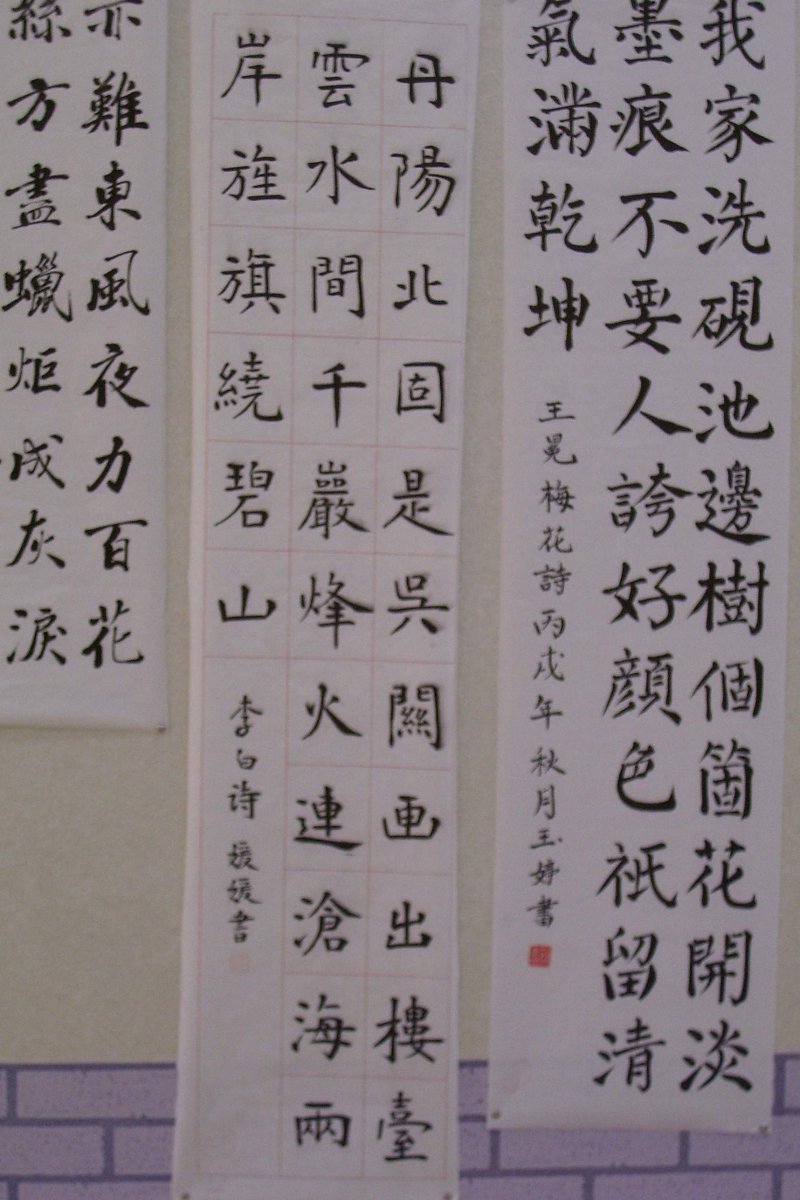 我家洗硯池邊樹個箇花開淡
墨痕不要人誇好顔色祇留清
氣滿乾坤
王冕梅花詩丙戌年秋月玉婷書
丹陽北固是吳關画出樓臺
雲水間千巖烽火連滄海兩
岸旌旗繞碧山
李白诗 媛媛書
亦難東風夜力百花
絲方盡蠟炬成灰淚